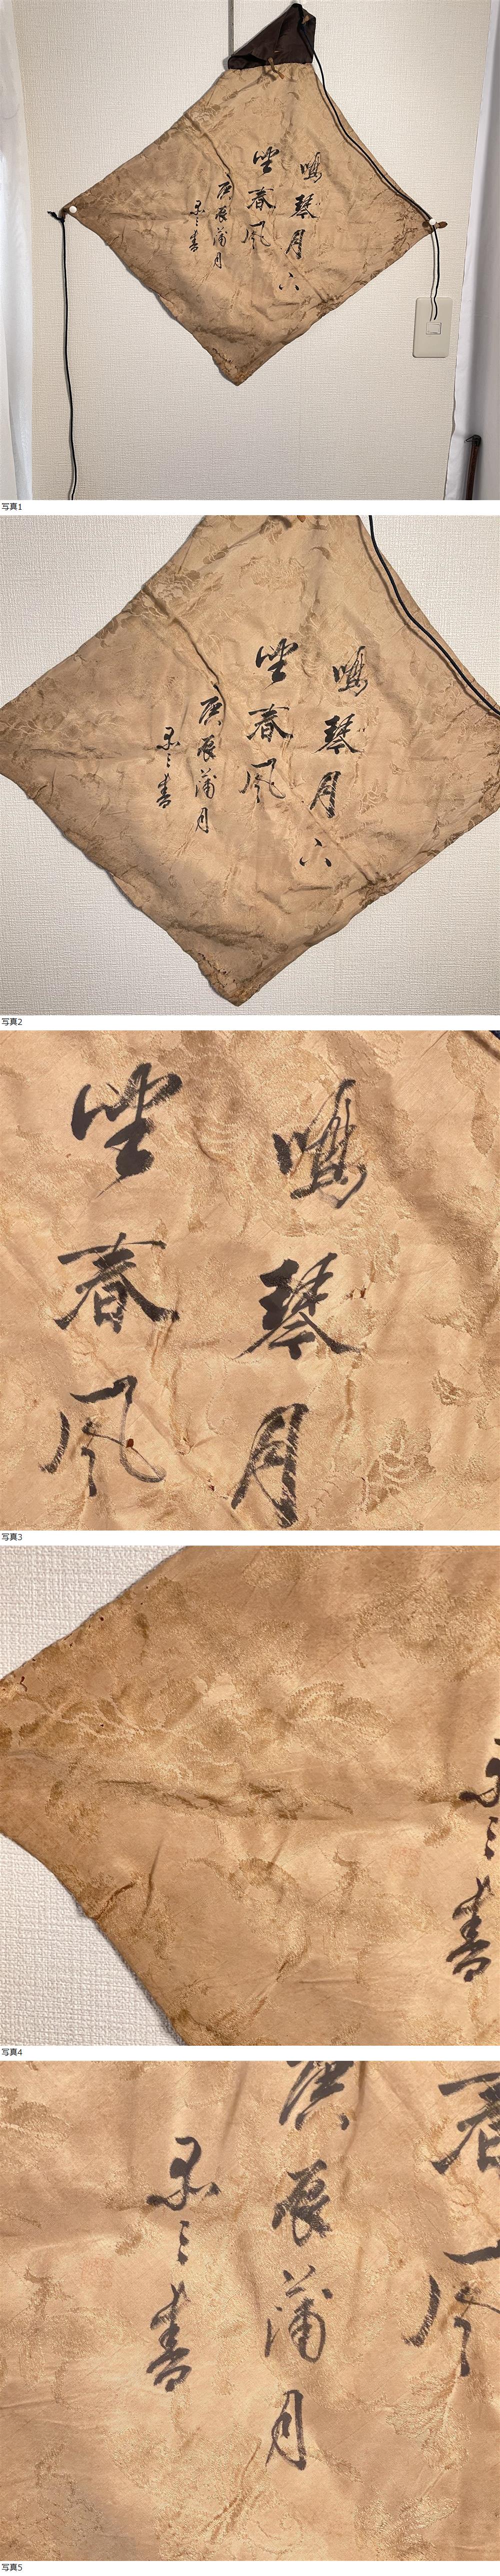 鳴琴月下
坐春風
庚辰蒲月
書
写真1
鳴琴月下
坐春風
庚辰蒲月
書
写真2
鳴琴月
坐春風
写真3
書
写真4
春
庚辰蒲月
書
写真5